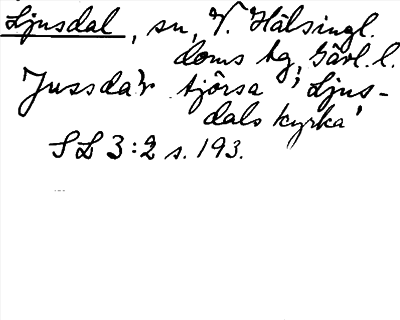 Ljusdal, sn, V. Hälsingl.
doms tg, Gävl. l.
Jussda'r tjörsa 'Ljus-
dals kyrka'
SL 3:2 s. 193.